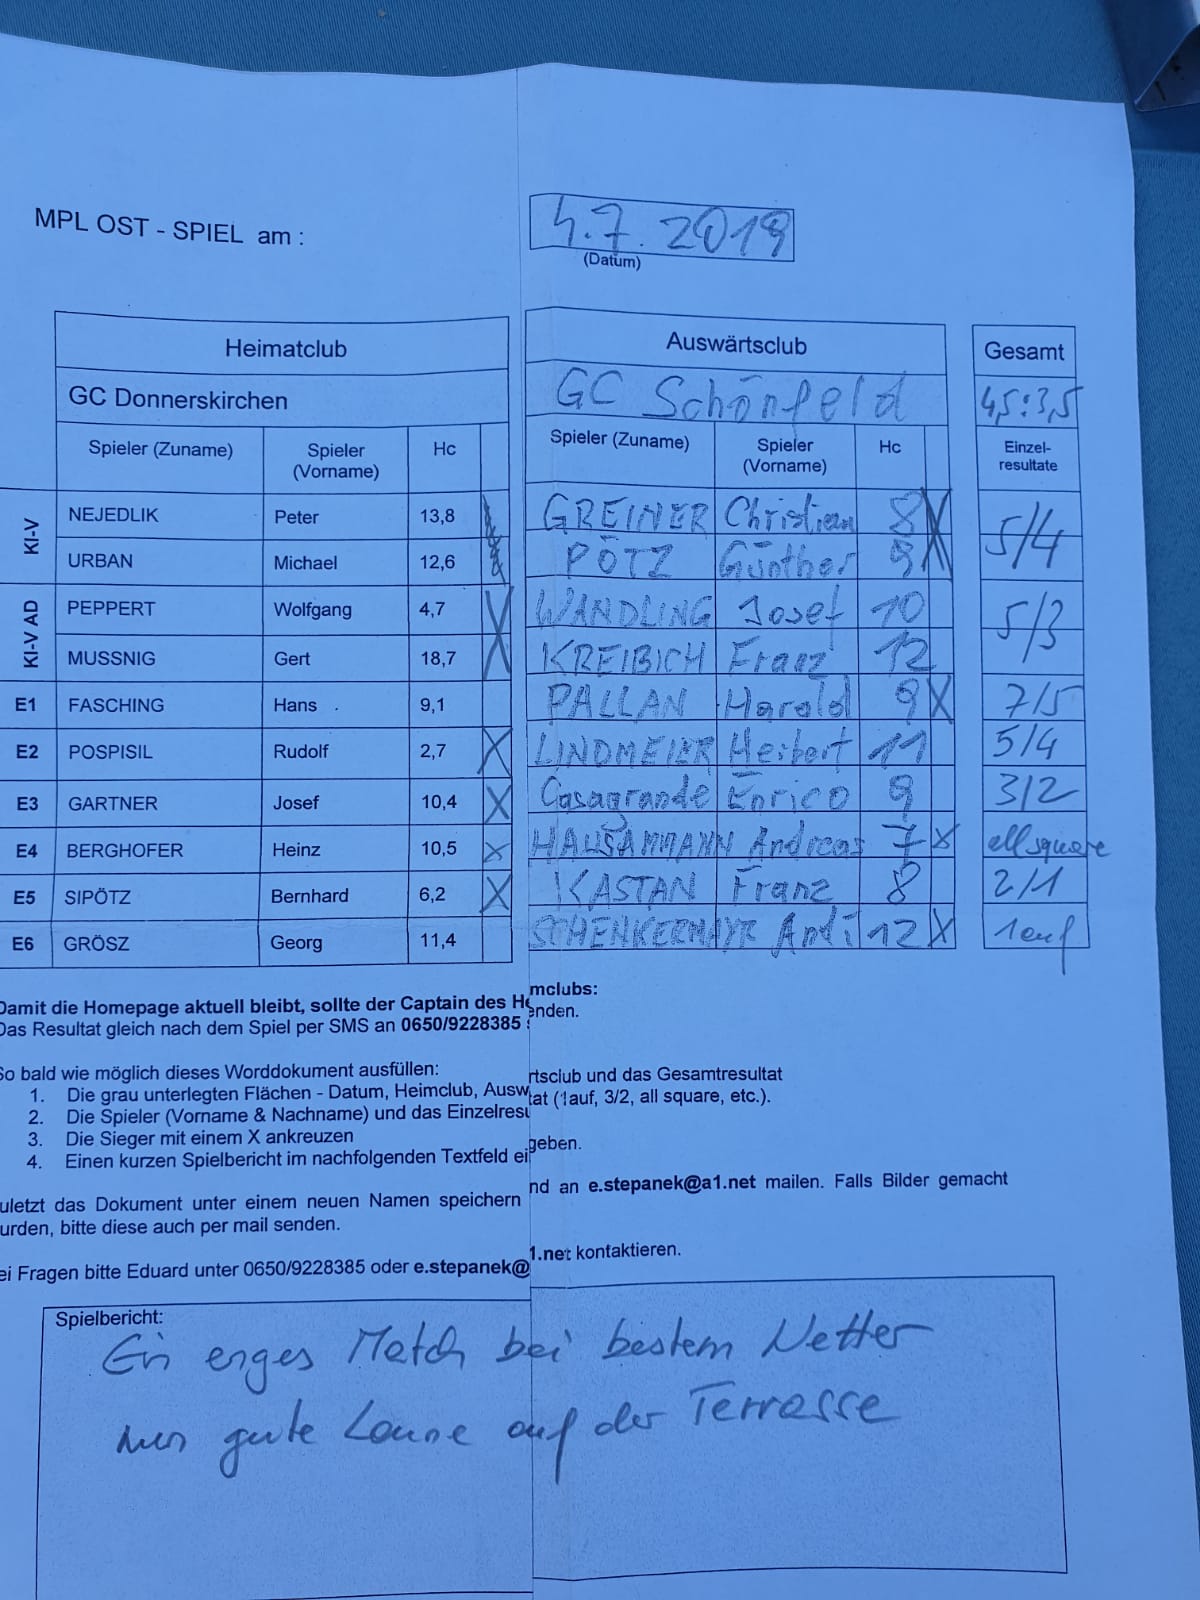 MPL OST - SPIEL am : 4.7.2019
(Datum)
Heimatclub Auswärtsclub Gesamt
GC Donnerskirchen GC Schönfeld 4,5:3,5
Spieler (Zuname) Spieler (Vorname) Hc Spieler (Zuname) Spieler (Vorname) Hc Einzel-resultate
KI-V NEJEDLIK Peter 13,8 GREINER Christian 8 X 5/4
URBAN Michael 12,6 PÖTZ Günther 9
KI-V AD PEPPERT Wolfgang 4,7 X WANDLING Josef 10 5/3
MUSSNIG Gert 18,7 KREIBICH Franz 12
E1 FASCHING Hans 9,1 PALLAN Harald 9 X 7/5
E2 POSPISIL Rudolf 2,7 X LINDMEIER Herbert 11 5/4
E3 GARTNER Josef 10,4 X Casagrande Enrico 9 3/2
E4 BERGHOFER Heinz 10,5 X HAUSAMMANN Andreas 7 X all square
E5 SIPÖTZ Bernhard 6,2 X KASTAN Franz 8 2/1
E6 GRÖSZ Georg 11,4 SCHENKERMAYR Andi 12 X 1 auf
Damit die Homepage aktuell bleibt, sollte der Captain des He mclubs:
Das Resultat gleich nach dem Spiel per SMS an 0650/9228385 enden.
So bald wie möglich dieses Worddokument ausfüllen:
1. Die grau unterlegten Flächen - Datum, Heimclub, Ausw rtsclub und das Gesamtresultat
2. Die Spieler (Vorname & Nachname) und das Einzelresu tat (1auf, 3/2, all square, etc.).
3. Die Sieger mit einem X ankreuzen
4. Einen kurzen Spielbericht im nachfolgenden Textfeld ei geben.
uletzt das Dokument unter einem neuen Namen speichern nd an e.stepanek@a1.net mailen. Falls Bilder gemacht
urden, bitte diese auch per mail senden.
ei Fragen bitte Eduard unter 0650/9228385 oder e.stepanek@ 1.net kontaktieren.
Spielbericht:
Ein enges Match bei bestem Wetter
gute Laune auf der Terrasse